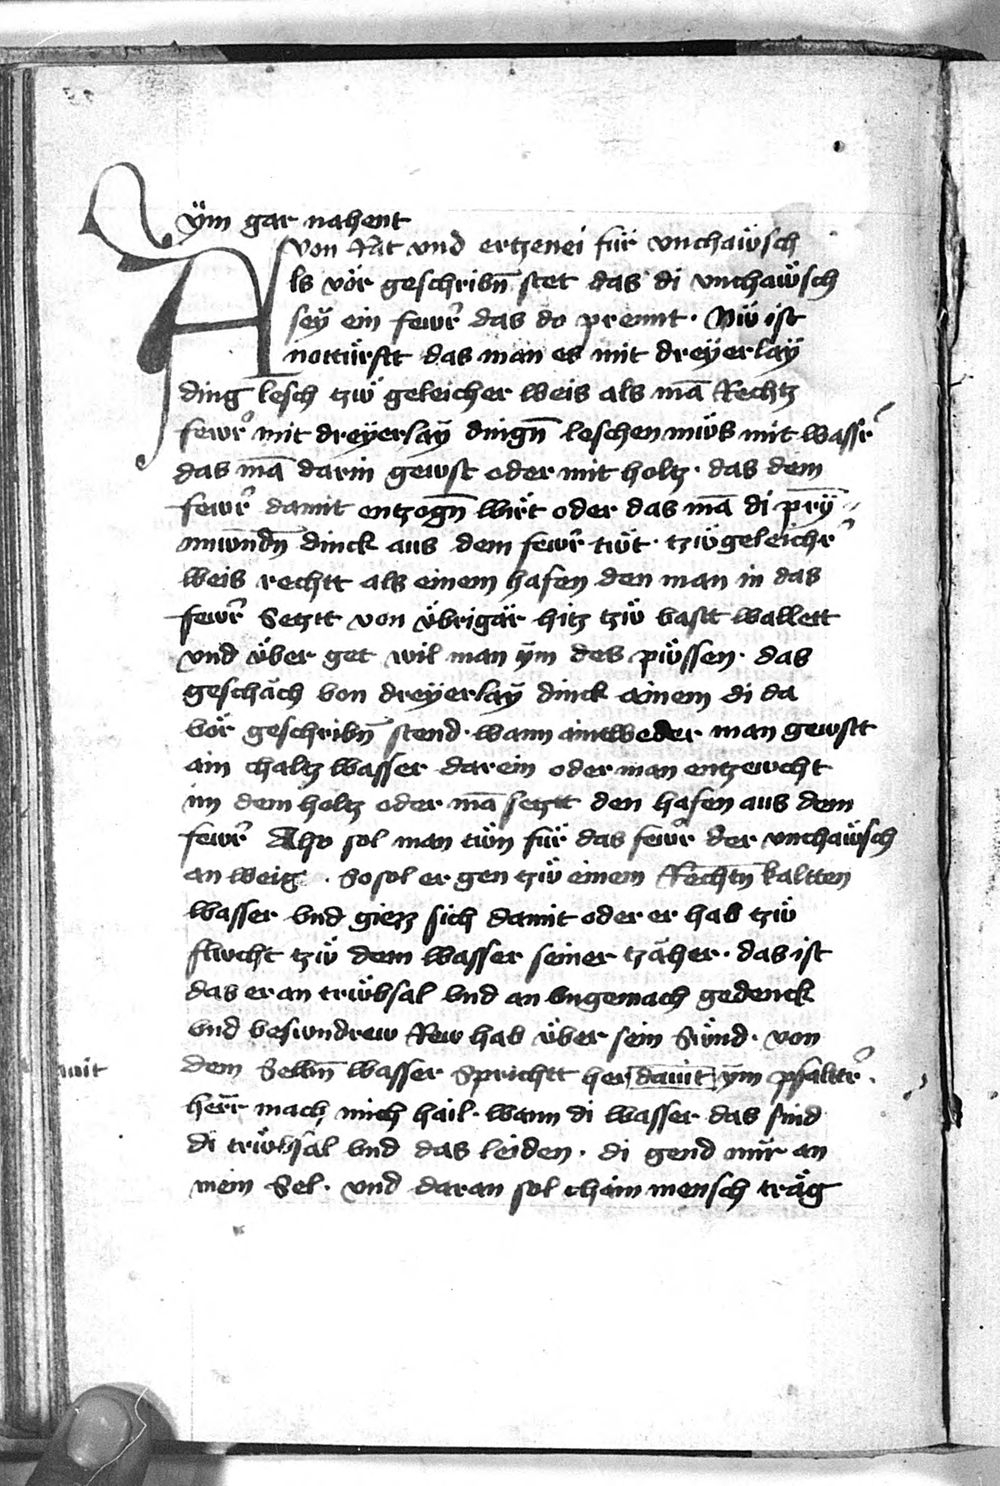 ÿm gar nahent
von Rat vnd ertzenei für vnchaẅsch
Als vör geschribn̄ stet das di vnchaẅsch
seÿ ein fewr̄ das do prennt · Nẅ ist
nottürftt das man es mit dreÿerlaÿ
ding lesch tzẅ geleicher weis als mā Rechtz
fewr̄ mit dreÿerlaÿ dingn̄ leschen mẅs mit wassr̄
das mā darin gewst oder mit holtz · das dem
fewr̄ damit entzogn̄ wirt oder das mā di prÿ
nnwndn̄ dinck aus dem fewr̄ tẅt · tzẅ geleichr̄
weis rechtt als einem hafen den man in das
fewr̄ Setztt von übrigär hitz tzẅ vastt wallett
vnd über get wil man ÿm des pẅssen · das
geschäch von dreÿerlaÿ dinck ainem di da
vör geschribn̄ stend · wann aintweder man gewstt
ain chaltz wasser darein oder man entzewcht
im dem holtz oder mā setztt den hafen aus dem
fewr̄ Also sol man tẅn für das fewr̄ der vnchaẅsch
an weig · So sol er gen tzẅ einem Rechtn̄ kaltten
wasser vnd giezz sich damit oder er hab tzẅ
flwcht tzẅ dem wasser seiner tzäher · das ist
das er an trẅbsal vnd an vngemach gedenck
vnd beswndrew Rew hab über sein Sẅnd · von
dem Selbn̄ wasser Sprichtt her dauit ÿm psalttr̄ ·
herr mach mich hail · wann di wasser das sind
di trẅbsal vnd das leiden · di gend mir an
mein Sel · vnd daran sol chain mensch träg